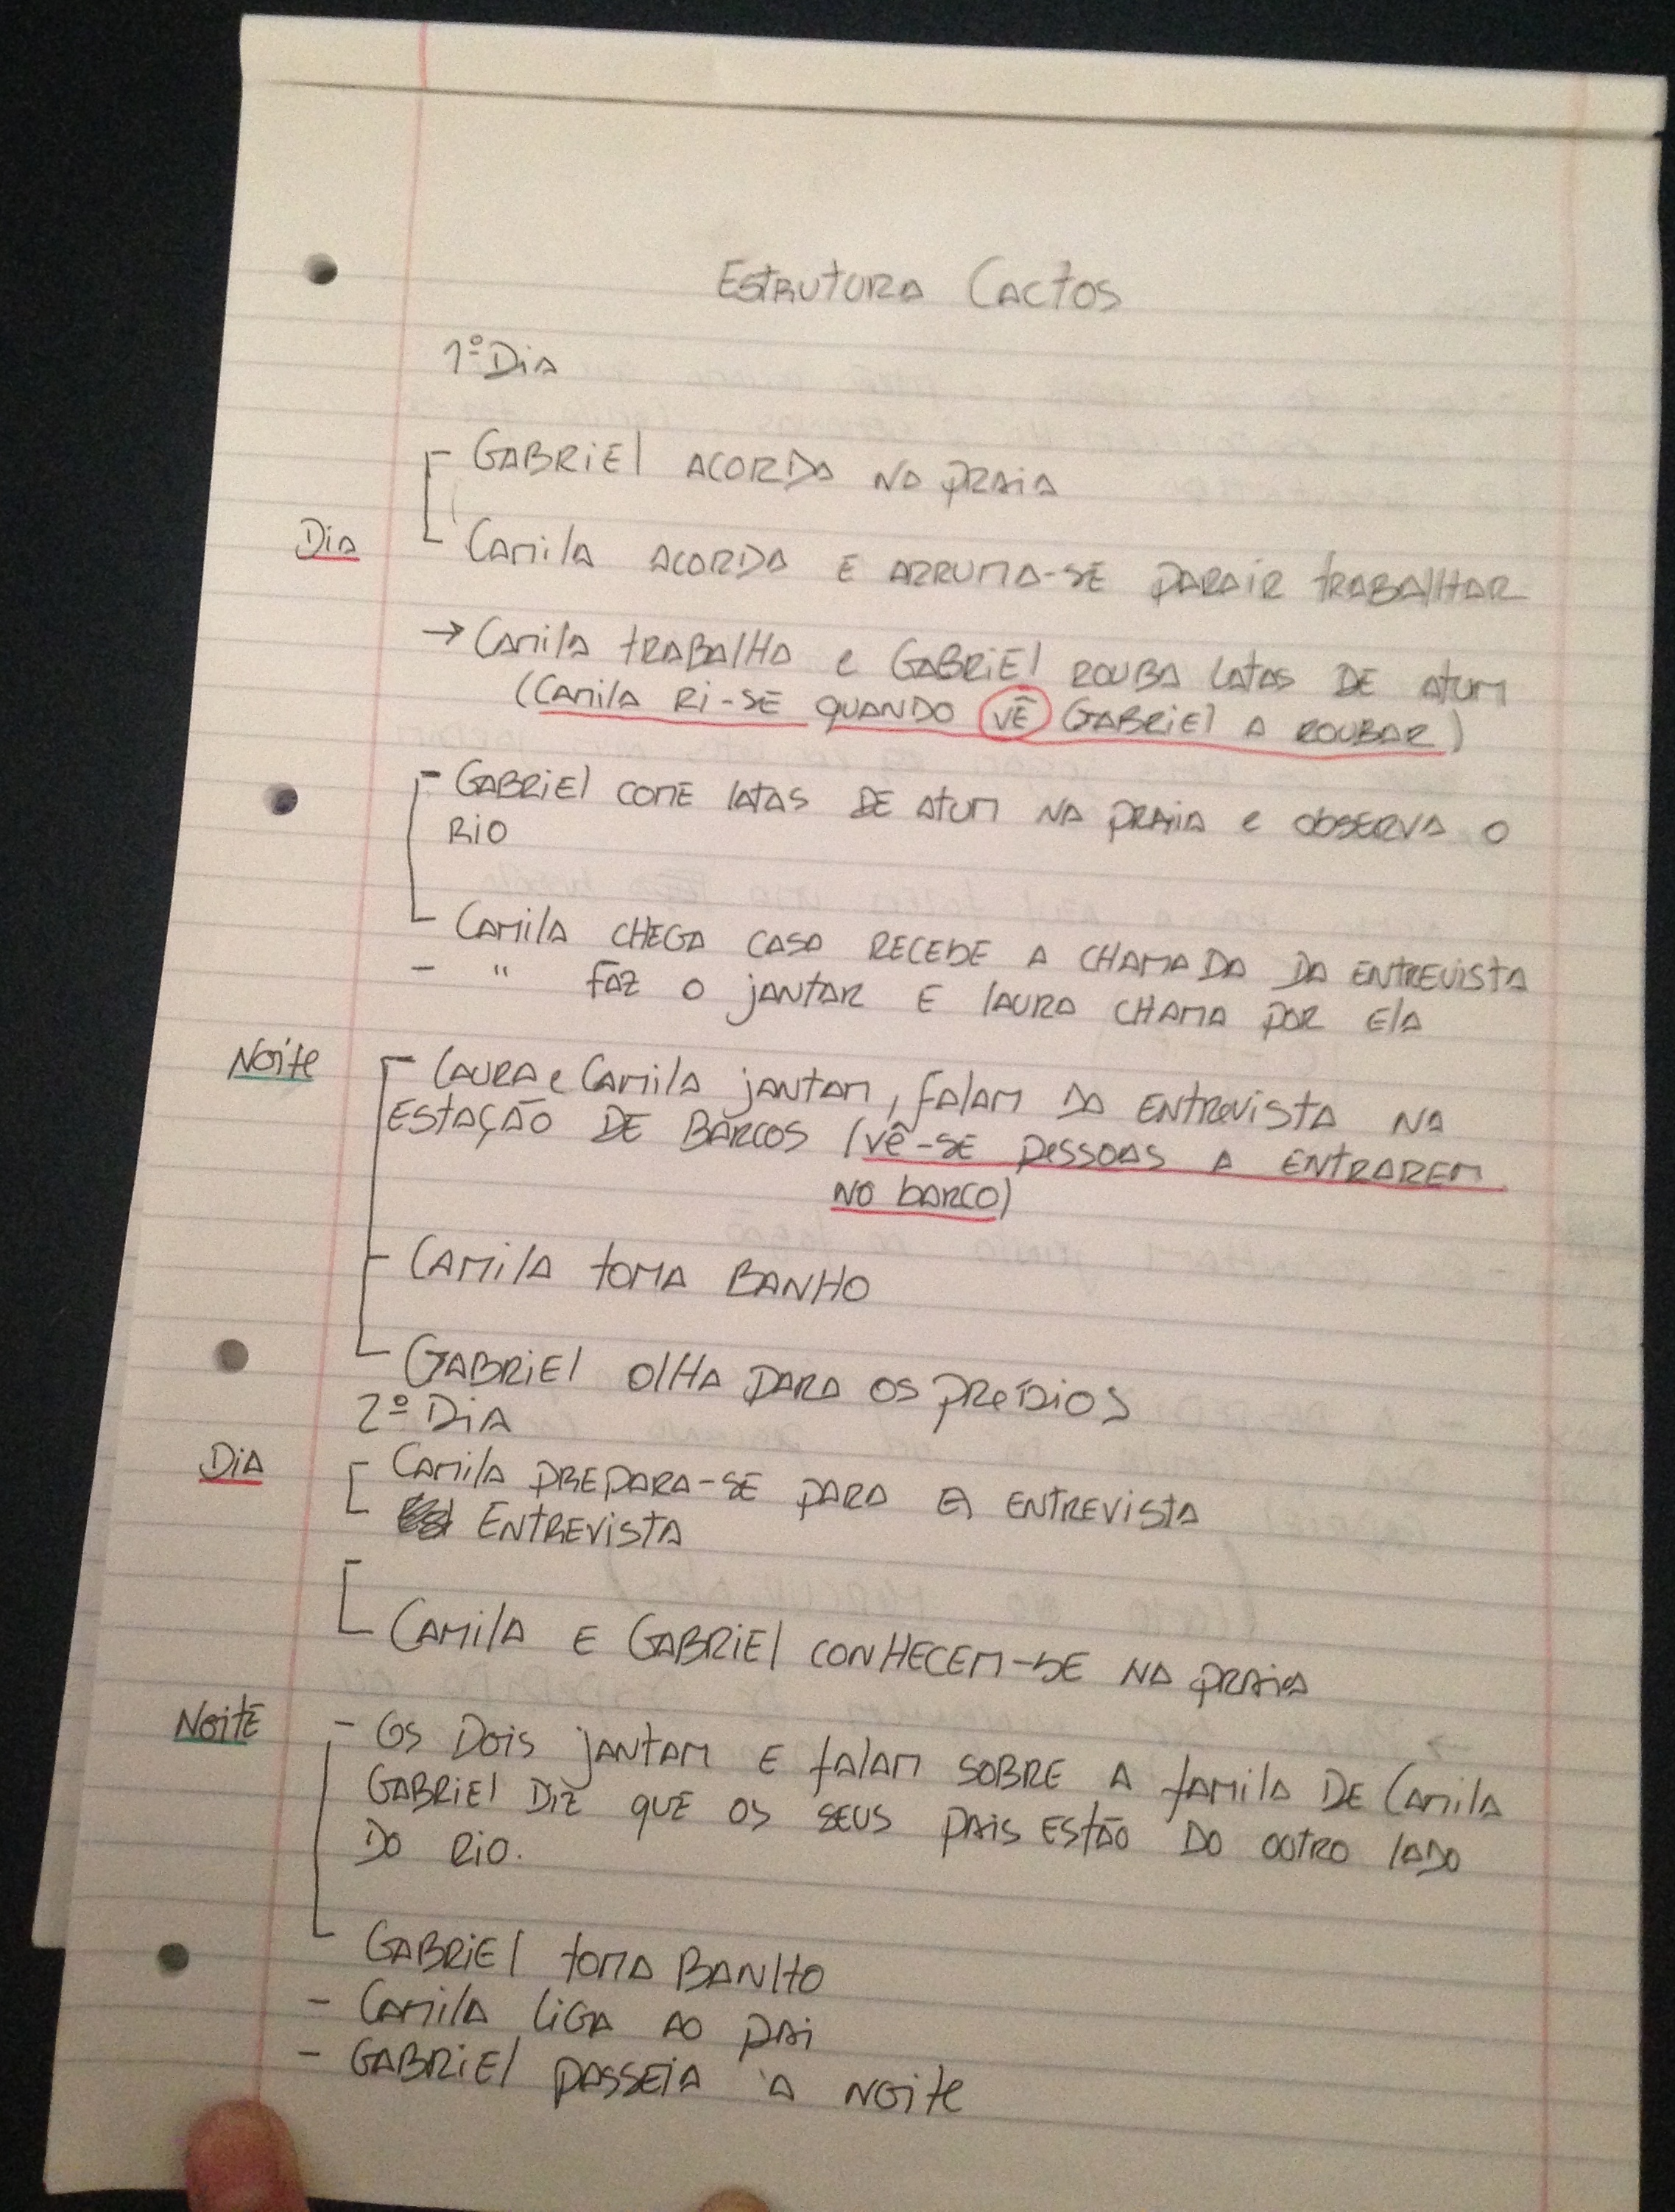 Estrutura Cactos
1º Dia
- Gabriel acorda na praia
Dia
- Camila acorda e arruma-se para ir trabalhar
→ Camila trabalha e Gabriel rouba latas de atum
(Camila ri-se quando vê Gabriel a roubar)
- Gabriel come latas de atum na praia e observa o
rio
- Camila chega casa recebe a chamada da entrevista
- " faz o jantar e Laura chama por ela
Noite
- Laura e Camila jantam, falam da entrevista na
estação de barcos (vê-se pessoas a entrarem
no barco)
- Camila toma banho
- Gabriel olha para os prédios
2º Dia
Dia
Camila prepara-se para a entrevista
Entrevista
Camila e Gabriel conhecem-se na praia
Noite
- Os dois jantam e falam sobre a famila de Camila
Gabriel diz que os seus pais estão do outro lado
do rio.
Gabriel toma banho
- Camila liga ao pai
- Gabriel passeia à noite